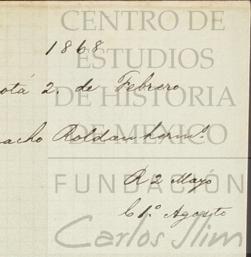 CENTRO DE
1868
ESTUDIOS
otá 2. de Febrero
DE HISTORIA
DE MEXICO
acho Roldan herm.s
FUNDACIÓN
R 2 Mayo
C 1.º Agosto
Carlos Slim